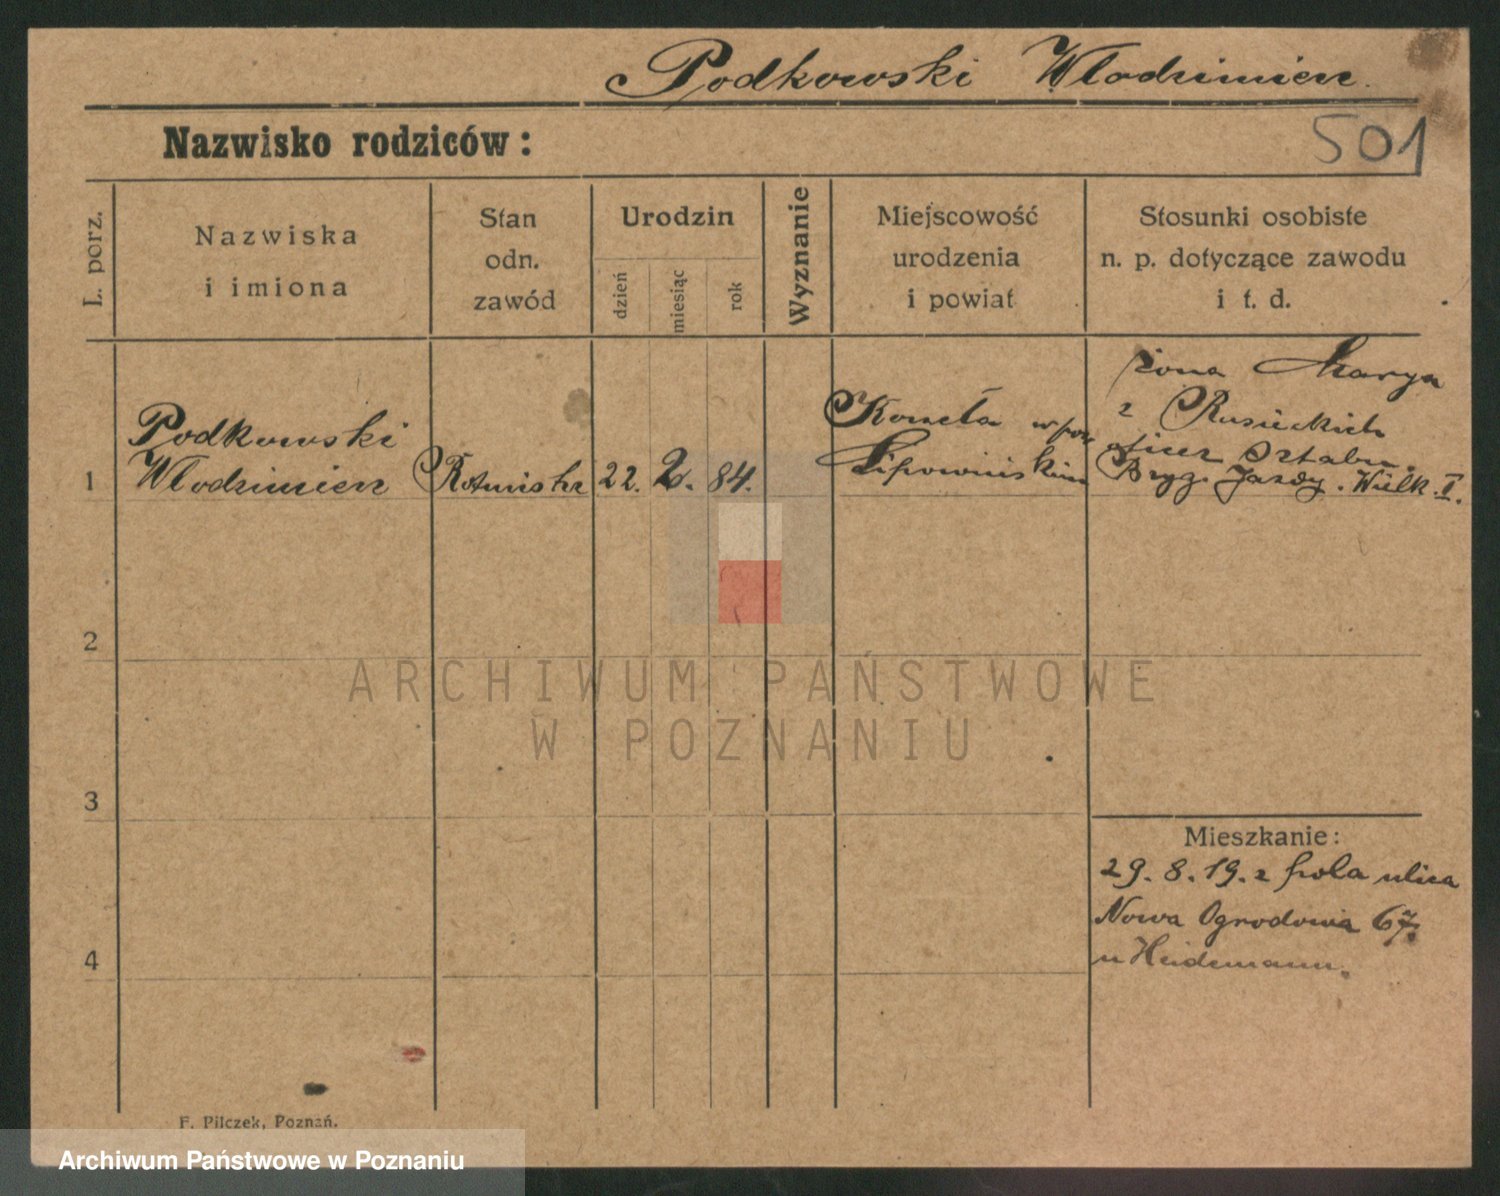 Podkowski Włodzimierz.
Nazwisko rodziców:
501
L. porz.
Nazwiska
i imiona
Stan
odn.
zawód
Urodzin
dzień
miesiąc
rok
Wyznanie
Miejscowość
urodzenia
i powiat
Stosunki osobiste
n. p. dotyczące zawodu
i t. d.
1
Podkowski
Włodzimierz
Rotmistrz
22. 2. 84.
w pow
Lipowieńskim
żona Marya
z Rusieckich
oficer Sztabu.
Bryg. Jazdy. Wielk. I.
2
3
4
Mieszkanie:
29. 8. 19. z pola ulica
Nowa Ogrodowa 67.
u Heidemann.
F. Pilczek, Poznań.
ARCHIWUM PAŃSTWOWE
W POZNANIU
Archiwum Państwowe w Poznaniu